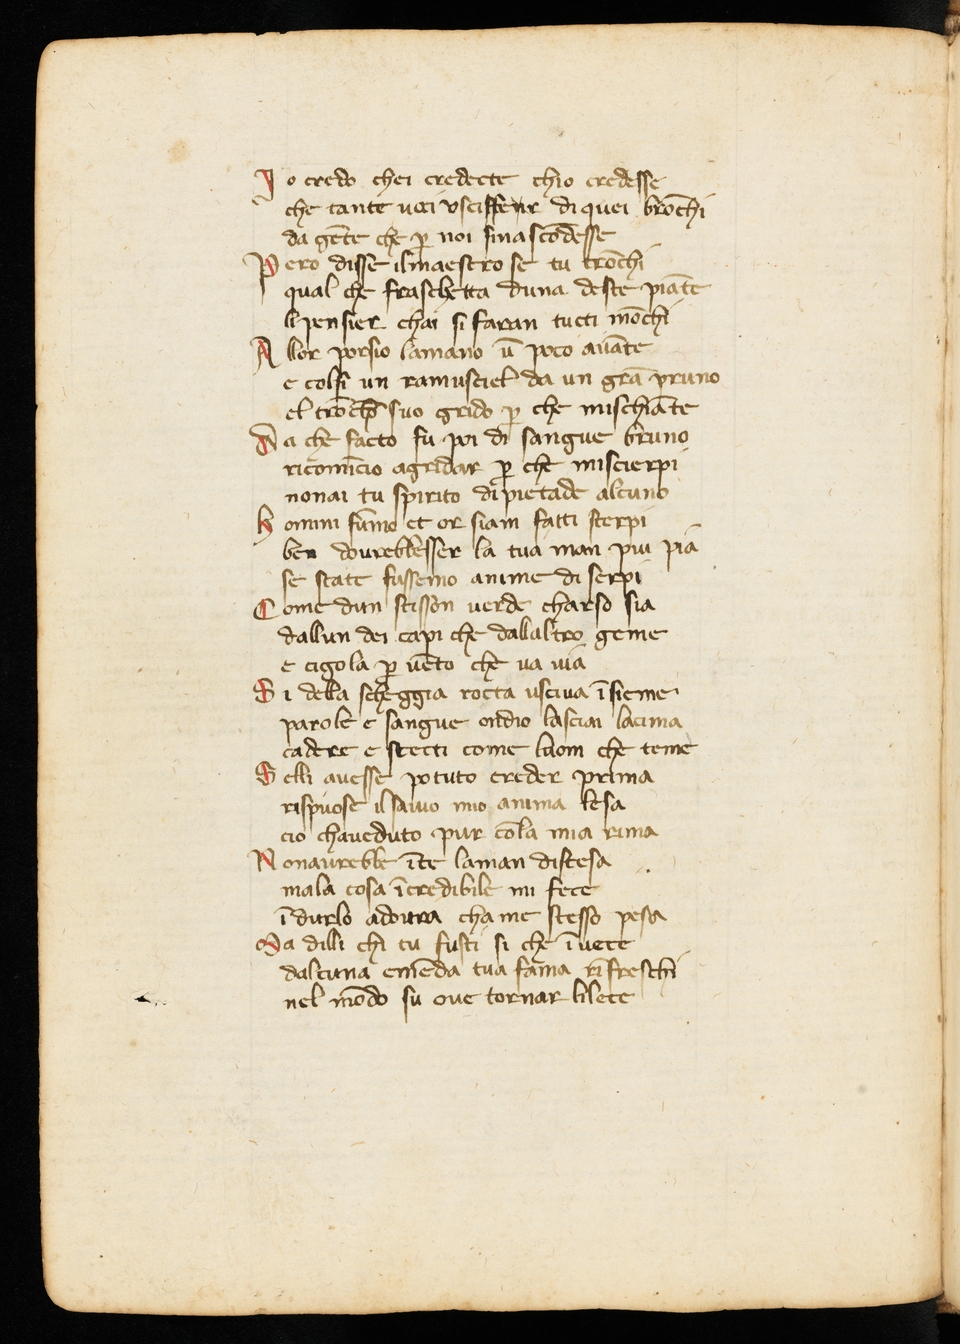 Io credo chei credecte chio credesse
che tante uoci usciffenr di quei brōchi
da gēte che p̄ noi sinascōdesse
Pero disse ilmaestro se tu trōchi
qual che fraschetta duna deste piāte
li pensier chai si faran tucti mōchi
Allor porsio lamano ū poco auāte
e colsi un ramusciel da un grā pruno
el trōcho suo grido p̄ che mischiāte
Da che facto fu poi di sangue bruno
ricomīcio agridar p̄ che miscierpi
nonai tu spirito di pietade alcuno
Homini fūmo et or siam fatti sterpi
ben dourebbesser la tua man piu pia
se state fussemo anime di serpi
Come dun stisson uerde charso sia
dallun dei capi che dallaltro geme
e cigola p̄ uēto che ua uia
Si della scheggia rocta usciua īsieme
parole e sangue ondio lasciai lacima
cadere e stetti come luom che teme
Selli auesse potuto creder prima
rispuose ilsauio mio anima lesa
cio chaueduto pur cōla mia rima
Nonaurebbe īte laman distesa
mala cosa īcredibile mi fece
īdurlo adoura chame stesso pesa
Ma dilli chi tu fusti si che īuece
dalcuna emēda tua fama rīfreschi
nel mōdo su oue tornar lilece